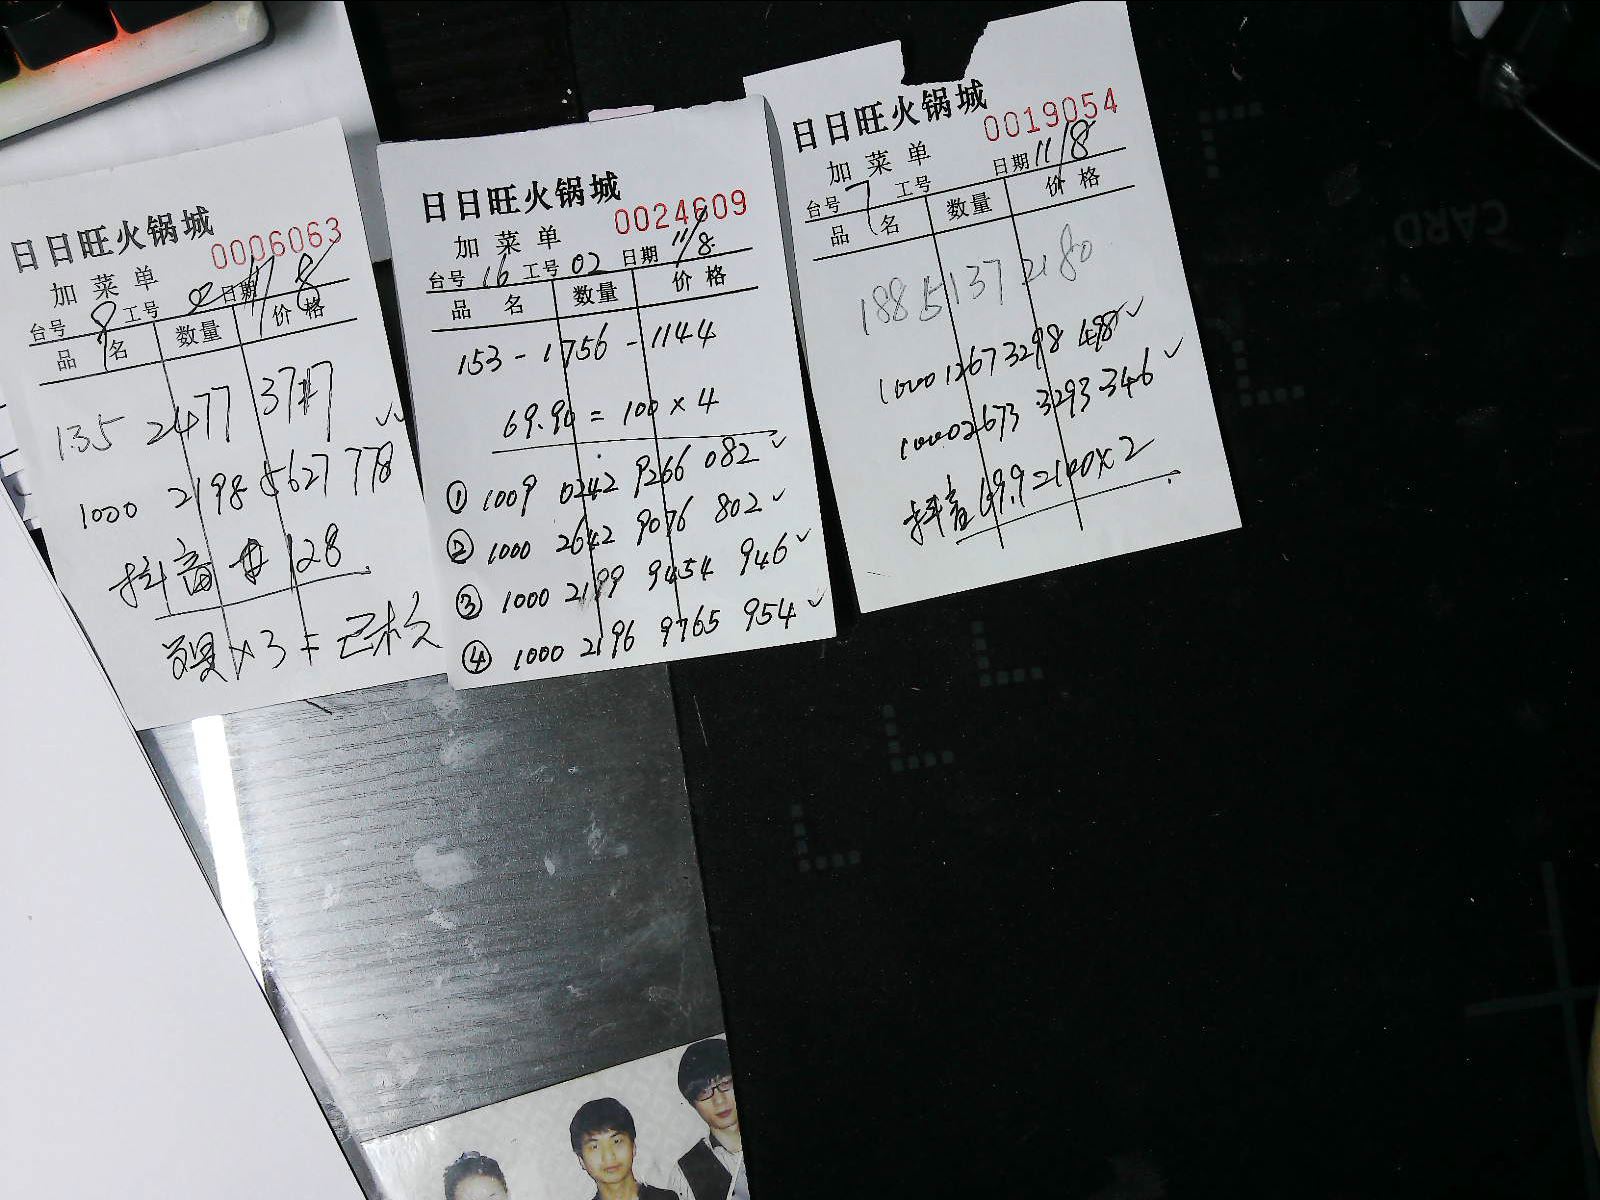 日日旺火锅城
0006063
加菜单
台号 8 工号 02 日期 11/8
品名 数量 价格
135 2477 3717
1000 2198 5627 778
抖音 128
×3 = 已核
日日旺火锅城
0024609
加菜单
台号 16 工号 02 日期 11/8
品名 数量 价格
153-1756-1144
69.90 = 100 × 4
① 1009 0242 9266 082 ✓
② 1000 2642 9076 802 ✓
③ 1000 2199 9454 946 ✓
④ 1000 2196 9765 954 ✓
日日旺火锅城
0019054
加菜单
台号 7 工号 日期 11/8
品名 数量 价格
188 5137 2180
1000 1267 3298 487 ✓
1000 2673 3293 346 ✓
抖音 69.9=100×2
CARD